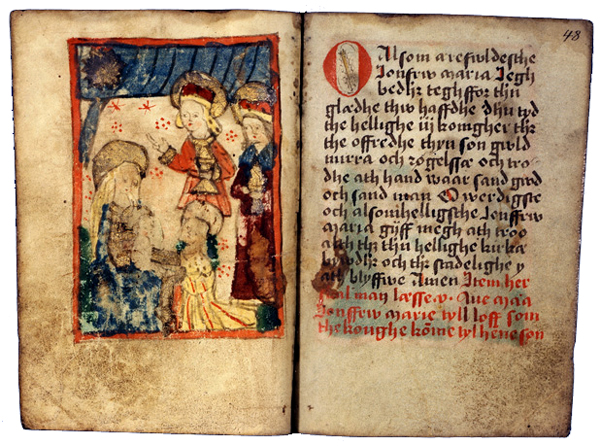 48
O Alsom arefwldesthe
Jonfrw maria Jegh
bedhr tegh ffor thn
glædhe thw haffdhe dhn tyd
the hellighe iij koningher thr
the offredhe thyn son gwld
mirra och røgelssæ och tro-
dhe ath hand waar sand gwd
och sand man O werdigste
och alsomhelligsthe Jonffrw
maria gijff megh ath troo
alth thr thn hellighe kirka
bywdhr och thr stadelighe y
ath blyffwe Amen Item her
skal man læsse .v. Aue maria
Jonffrw marie tyll loff som
the konghe kōme tyl hene son